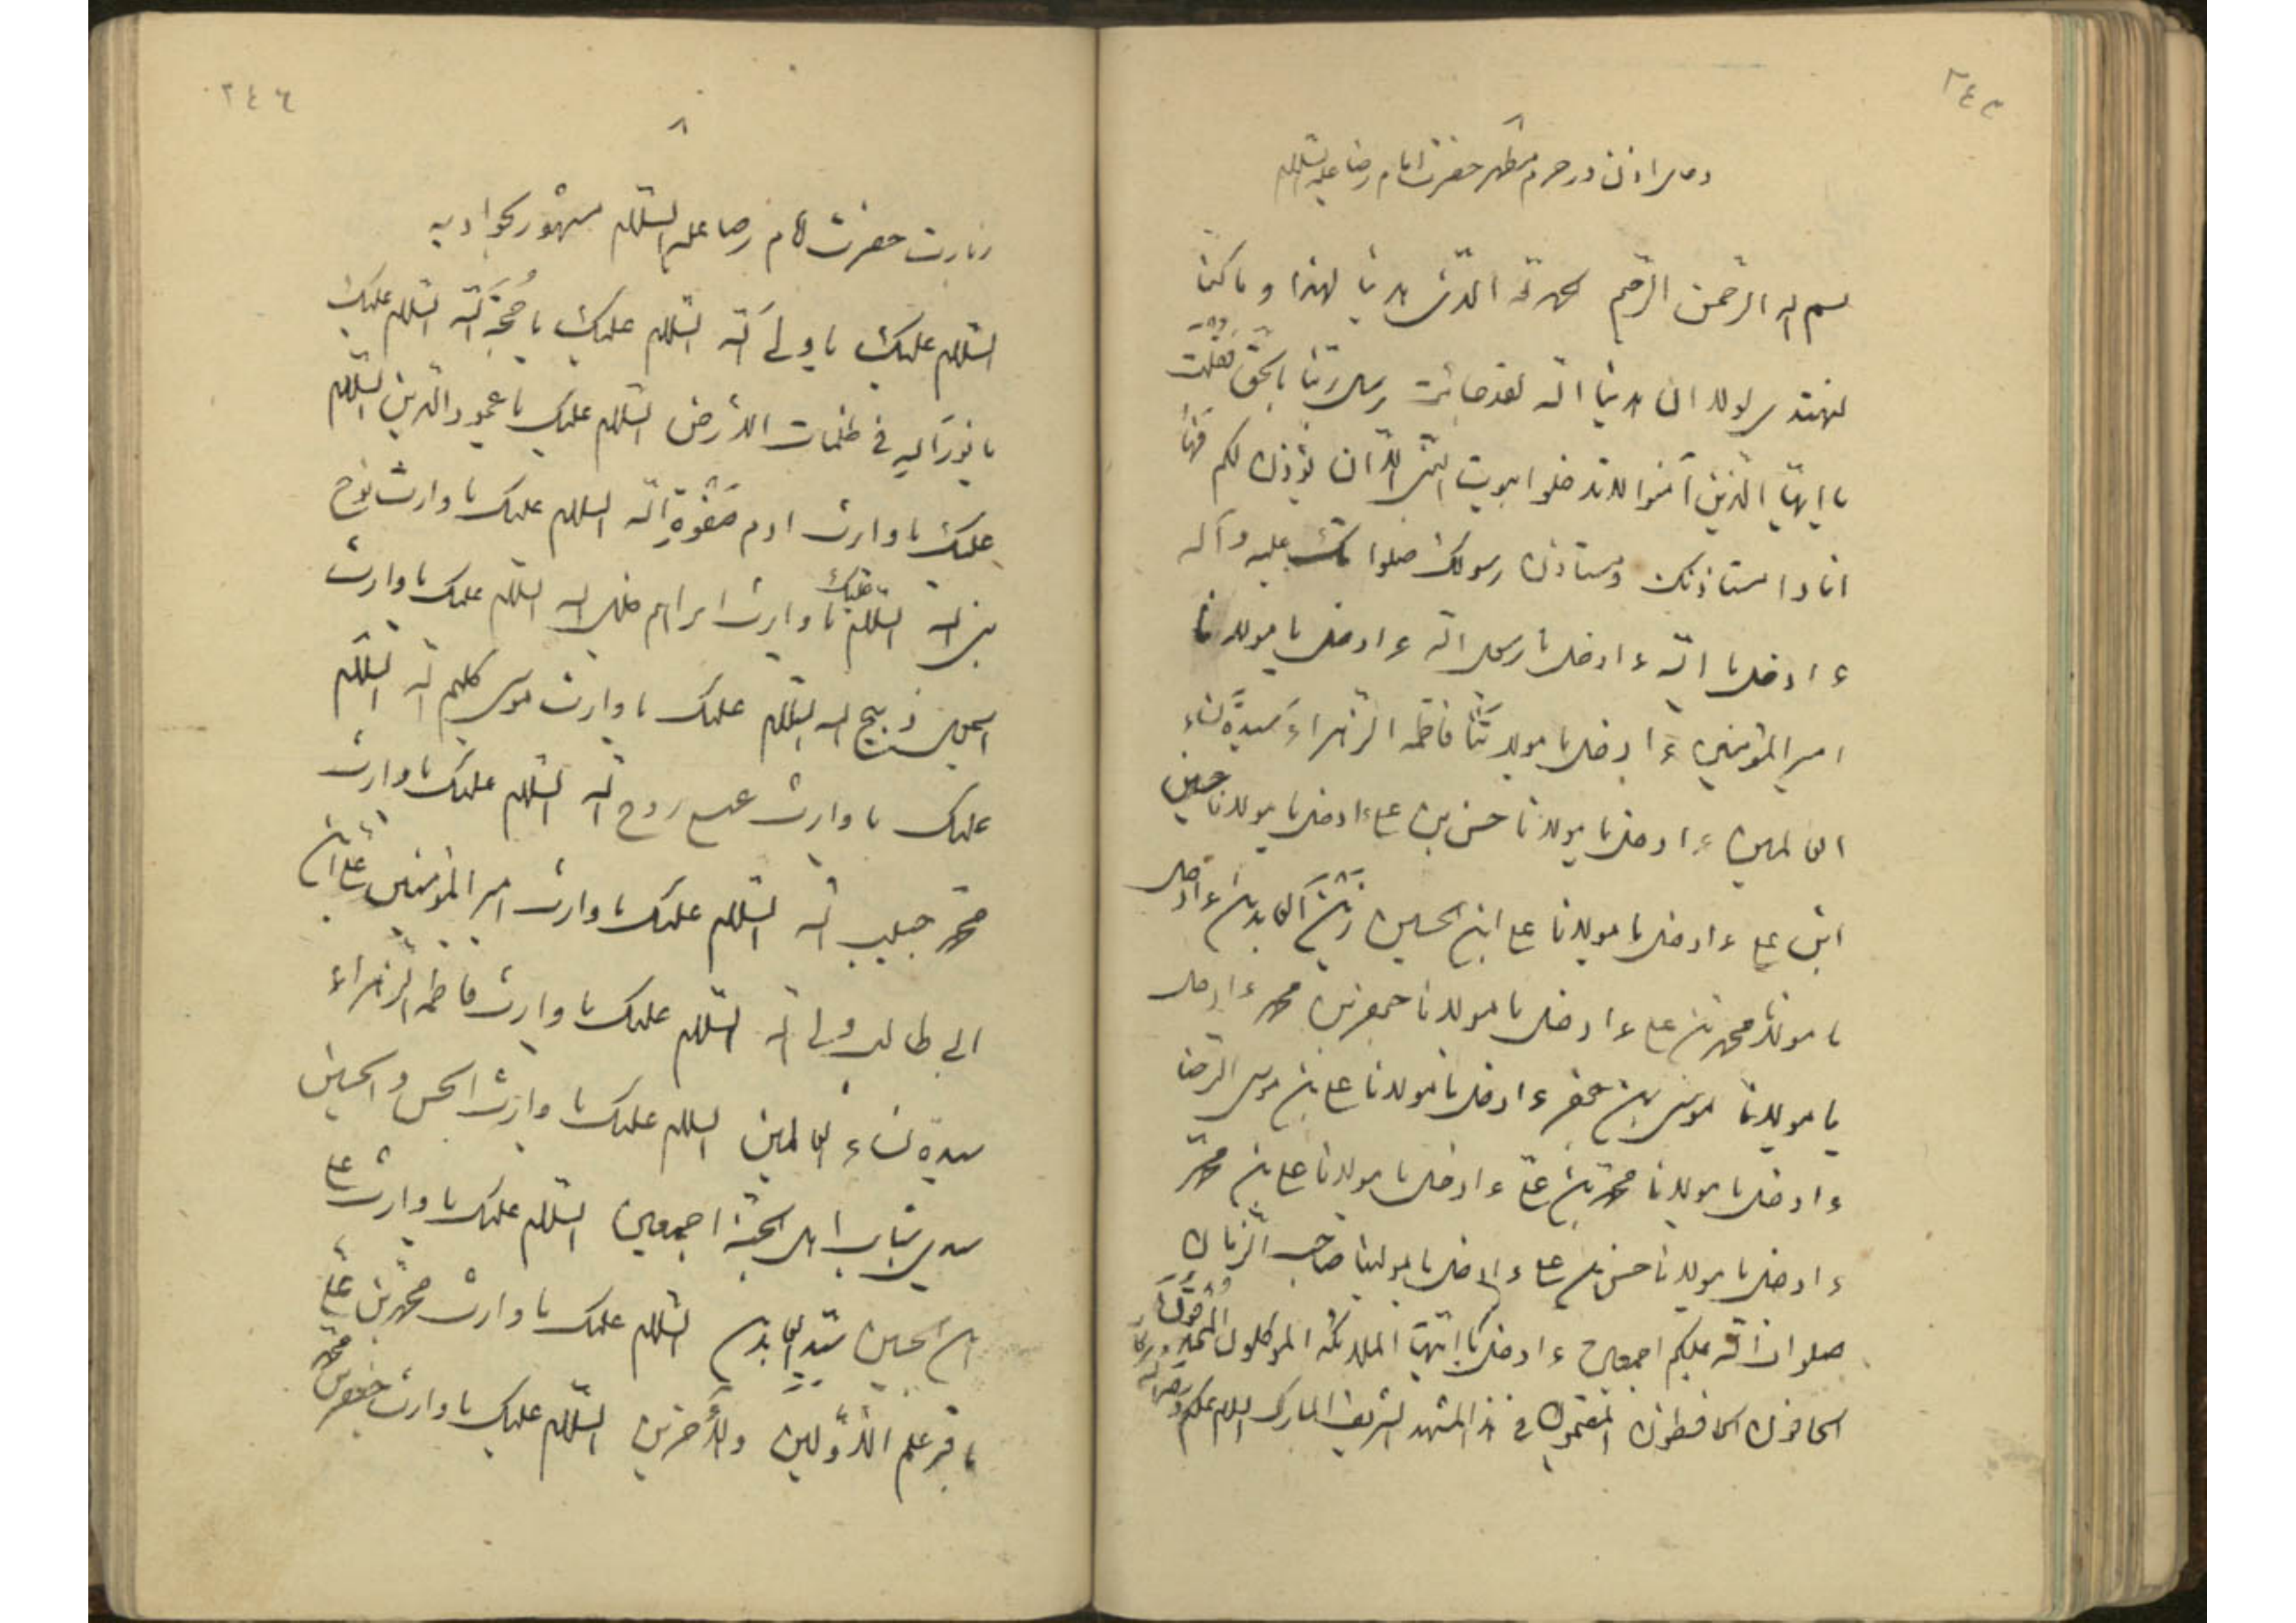 ٢٤٥
دعای اذن در حرم مطهر حضرت امام رضا علیه السلام
بسم الله الرحمن الرحیم الحمد لله الذی هدینا لهذا و ما کنا
لنهتدی لولا ان هدینا الله لقد جائت رسل ربنا بالحق فقلت
یا ایها الذین آمنوا لا تدخلوا بیوت النبی الا ان یؤذن لکم
استاذنک و استاذن رسولک صلواتک علیه و آله
ءادخل یا الله ءادخل یا رسول الله ءادخل یا مولانا
امیر المؤمنین ءادخل یا مولاتنا فاطمة الزهراء سیدة نساء
العالمین ءادخل یا مولانا حسن بن علی ءادخل یا مولانا حسین
ابن علی ءادخل یا مولانا علی ابن الحسین زین العابدین ءادخل
یا مولانا محمد بن علی ءادخل یا مولانا جعفر بن محمد ءادخل
یا مولانا موسی بن جعفر ءادخل یا مولانا علی بن موسی الرضا
ءادخل یا مولانا محمد بن علی ءادخل یا مولانا علی بن محمد
ءادخل یا مولانا حسن بن علی ءادخل یا مولینا صاحب الزمان
صلوات الله علیکم اجمعین ءادخل یا ایتها الملائکة الموکلون المحدقون
الحافون الحافظون المقیمون فی هذا المشهد الشریف المبارک السلام علیکم و رحمة الله و برکاته
٢٤٦
زیارت حضرت امام رضا علیه السلام مشهور بجوادیه
السلام علیک یا ولی الله السلام علیک یا حجة الله السلام علیک
یا نور الله فی ظلمات الارض السلام علیک یا عمود الدین السلام
علیک یا وارث ادم صفوة الله السلام علیک یا وارث نوح
نبی الله السلام علیک یا وارث ابراهیم خلیل الله السلام علیک یا وارث
اسمعیل ذبیح الله السلام علیک یا وارث موسی کلیم الله السلام
علیک یا وارث عیسی روح الله السلام علیک یا وارث
محمد حبیب الله السلام علیک یا وارث امیر المؤمنین علی ابن
ابی طالب ولی الله السلام علیک یا وارث فاطمة الزهراء
سیدة نساء العالمین السلام علیک یا وارث الحسن و الحسین
سیدی شباب اهل الجنة اجمعین السلام علیک یا وارث علی
بن الحسین سید العابدین السلام علیک یا وارث محمد بن علی
باقر علم الاولین و الاخرین السلام علیک یا وارث جعفر بن محمد